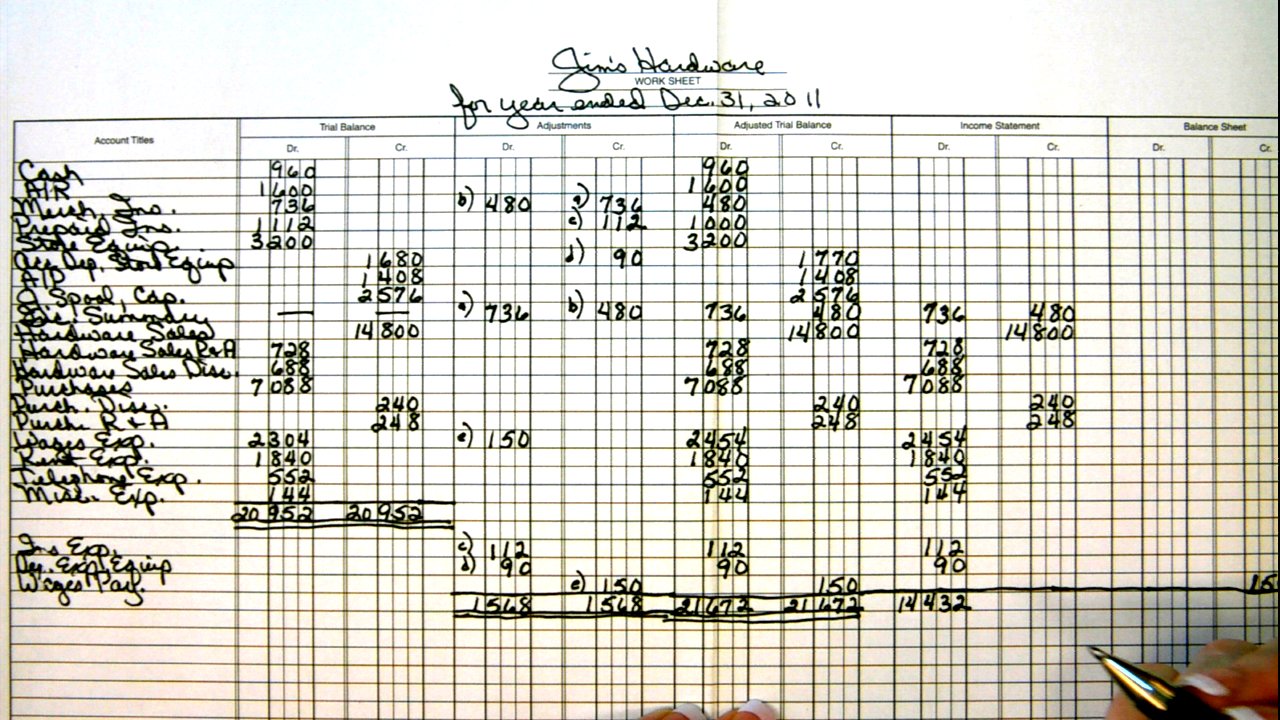 Jim's Hardware
WORK SHEET
for year ended Dec. 31, 2011
Account Titles Trial Balance Adjustments Adjusted Trial Balance Income Statement Balance Sheet
Dr. Cr. Dr. Cr. Dr. Cr. Dr. Cr. Cr.
Cash 960 960
A/R 1600 1600
Merch. Inv. 736 b) 480 a) 736 480
Prepaid Ins. 1112 c) 112 1000
Store Equip. 3200 3200
Acc. Dep. Store Equip d) 90 1680 1770
A/P 1408 1408
Spool, Cap. 2576 2576
Summary — — a) 736 b) 480 736 480 736 480
Hardware Sales 14800 14800 14800
Hardware Sales R+A 728 728 728
Hardware Sales Disc. 688 688 688
Purchases 7088 7088 7088
Purch. Disc. 240 240 240
Purch. R + A 248 248 248
Wages Exp. 2304 e) 150 2454 2454
Rent Exp. 1840 1840 1840
Telephone Exp. 552 552 552
Misc. Exp. 144 144 144
20952 20952
Ins Exp. c) 112 112 112
Dep. Exp. Equip d) 90 90 90
Wages Pay. e) 150 150 15
1568 1568 21672 21672 14432